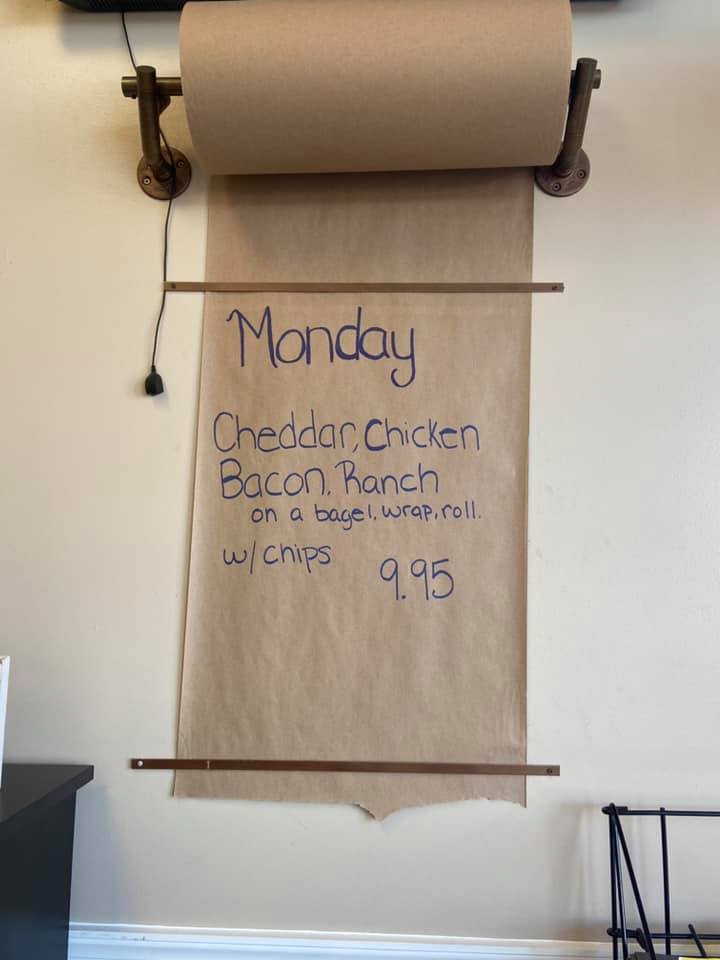 Monday
Cheddar, Chicken
Bacon. Ranch
on a bagel, wrap, roll.
w/ chips
9.95